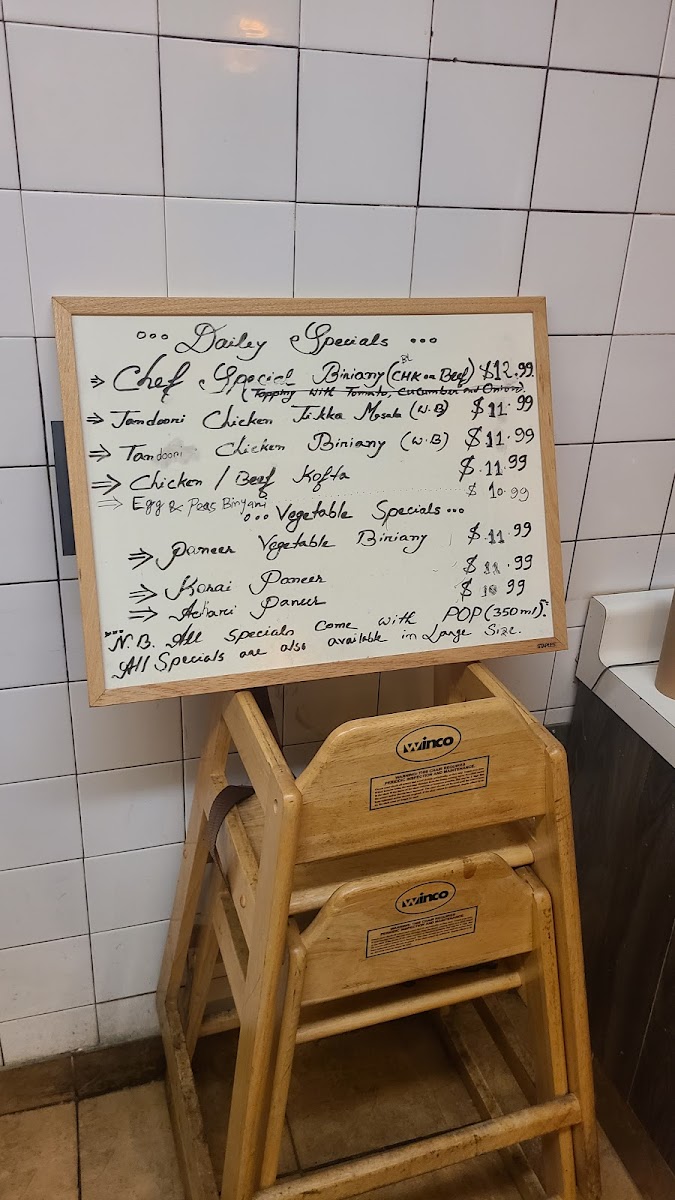 °°° Dailey Specials °°°
⇒ Chef Special Biriany (CHK or Beef) $12.99
(Topping with Tomato, Cucumber and Onion)
⇒ Tandoori Chicken Tikka Masala (W.B) $11.99
⇒ Tandoori Chicken Biriany (W.B) $11.99
⇒ Chicken / Beef Kofta $.11.99
⇒ Egg & Peas Biriyani $ 10.99
°°° Vegetable Specials °°°
⇒ Paneer Vegetable Biriany $.11.99
⇒ Korai Paneer $ 11.99
⇒ Achari Paneer $ 10 99
N.B. All Specials Come with POP (350 ml).
All Specials are also available in Large Size.
STAPLES
Winco
WARNING: THIS CHAIR REQUIRES
PERIODIC INSPECTION AND MAINTENANCE.
Winco